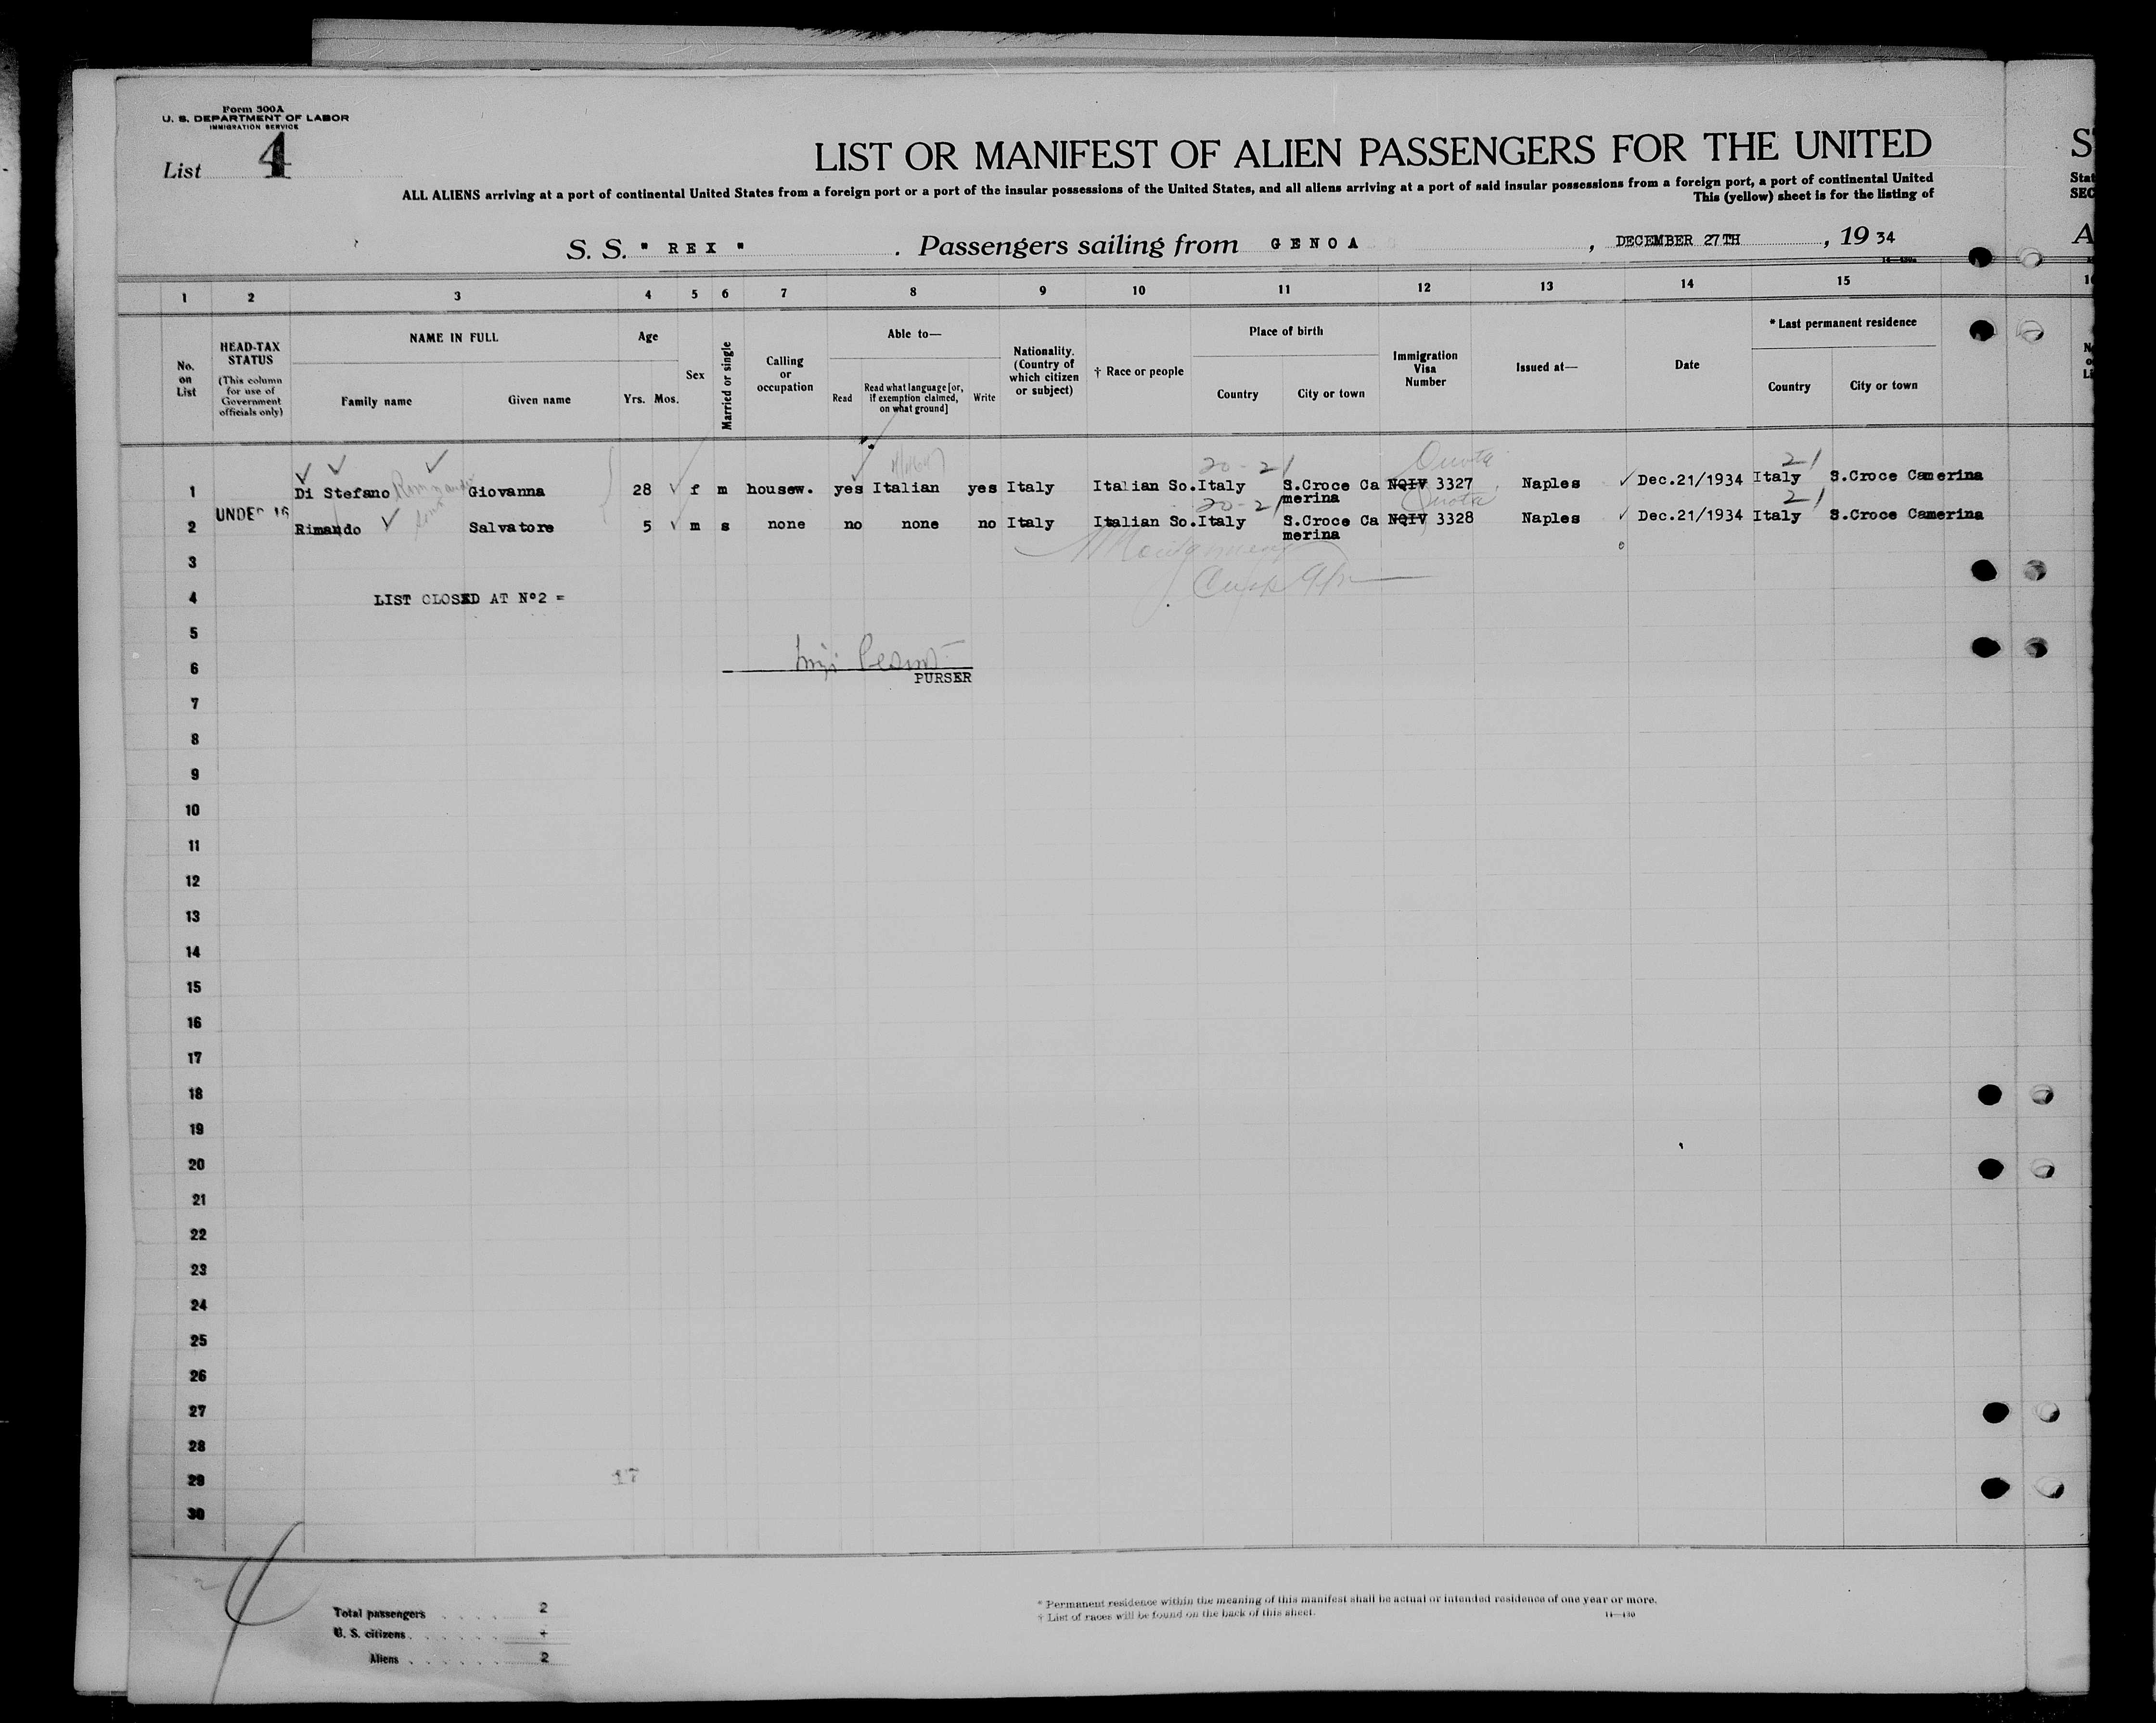 Form 500A
U. S. DEPARTMENT OF LABOR
IMMIGRATION SERVICE
List 4
LIST OR MANIFEST OF ALIEN PASSENGERS FOR THE UNITED
ALL ALIENS arriving at a port of continental United States from a foreign port or a port of the insular possessions of the United States, and all aliens arriving at a port of said insular possessions from a foreign port, a port of continental United
This (yellow) sheet is for the listing of
S. S. " REX " . Passengers sailing from GENOA , DECEMBER 27TH , 19 34
1 2 3 4 5 6 7 8 9 10 11 12 13 14 15
No. on List
HEAD-TAX STATUS
(This column for use of Government officials only)
NAME IN FULL
Family name Given name
Age
Yrs. Mos.
Sex
Married or single
Calling or occupation
Able to—
Read
Read what language [or, if exemption claimed, on what ground]
Write
Nationality. (Country of which citizen or subject)
† Race or people
Place of birth
Country City or town
Immigration Visa Number
Issued at—
Date
* Last permanent residence
Country City or town
20-21 Quota 21
1 Di Stefano Giovanna 28 f m housew. yes Italian yes Italy Italian So. Italy S.Croce Ca NQIV 3327 Naples Dec.21/1934 Italy S.Croce Camerina
merina
UNDER 16 20-21 Quota 21
2 Rimando Salvatore 5 m s none no none no Italy Italian So. Italy S.Croce Ca NQIV 3328 Naples Dec.21/1934 Italy S.Croce Camerina
merina
3
4 LIST CLOSED AT Nº2 =
5
6
PURSER
7
8
9
10
11
12
13
14
15
16
17
18
19
20
21
22
23
24
25
26
27
28
29 17
30
4
Total passengers . . . . . 2
U. S. citizens . . . . . .
Aliens . . . . . . 2
* Permanent residence within the meaning of this manifest shall be actual or intended residence of one year or more.
† List of races will be found on the back of this sheet.